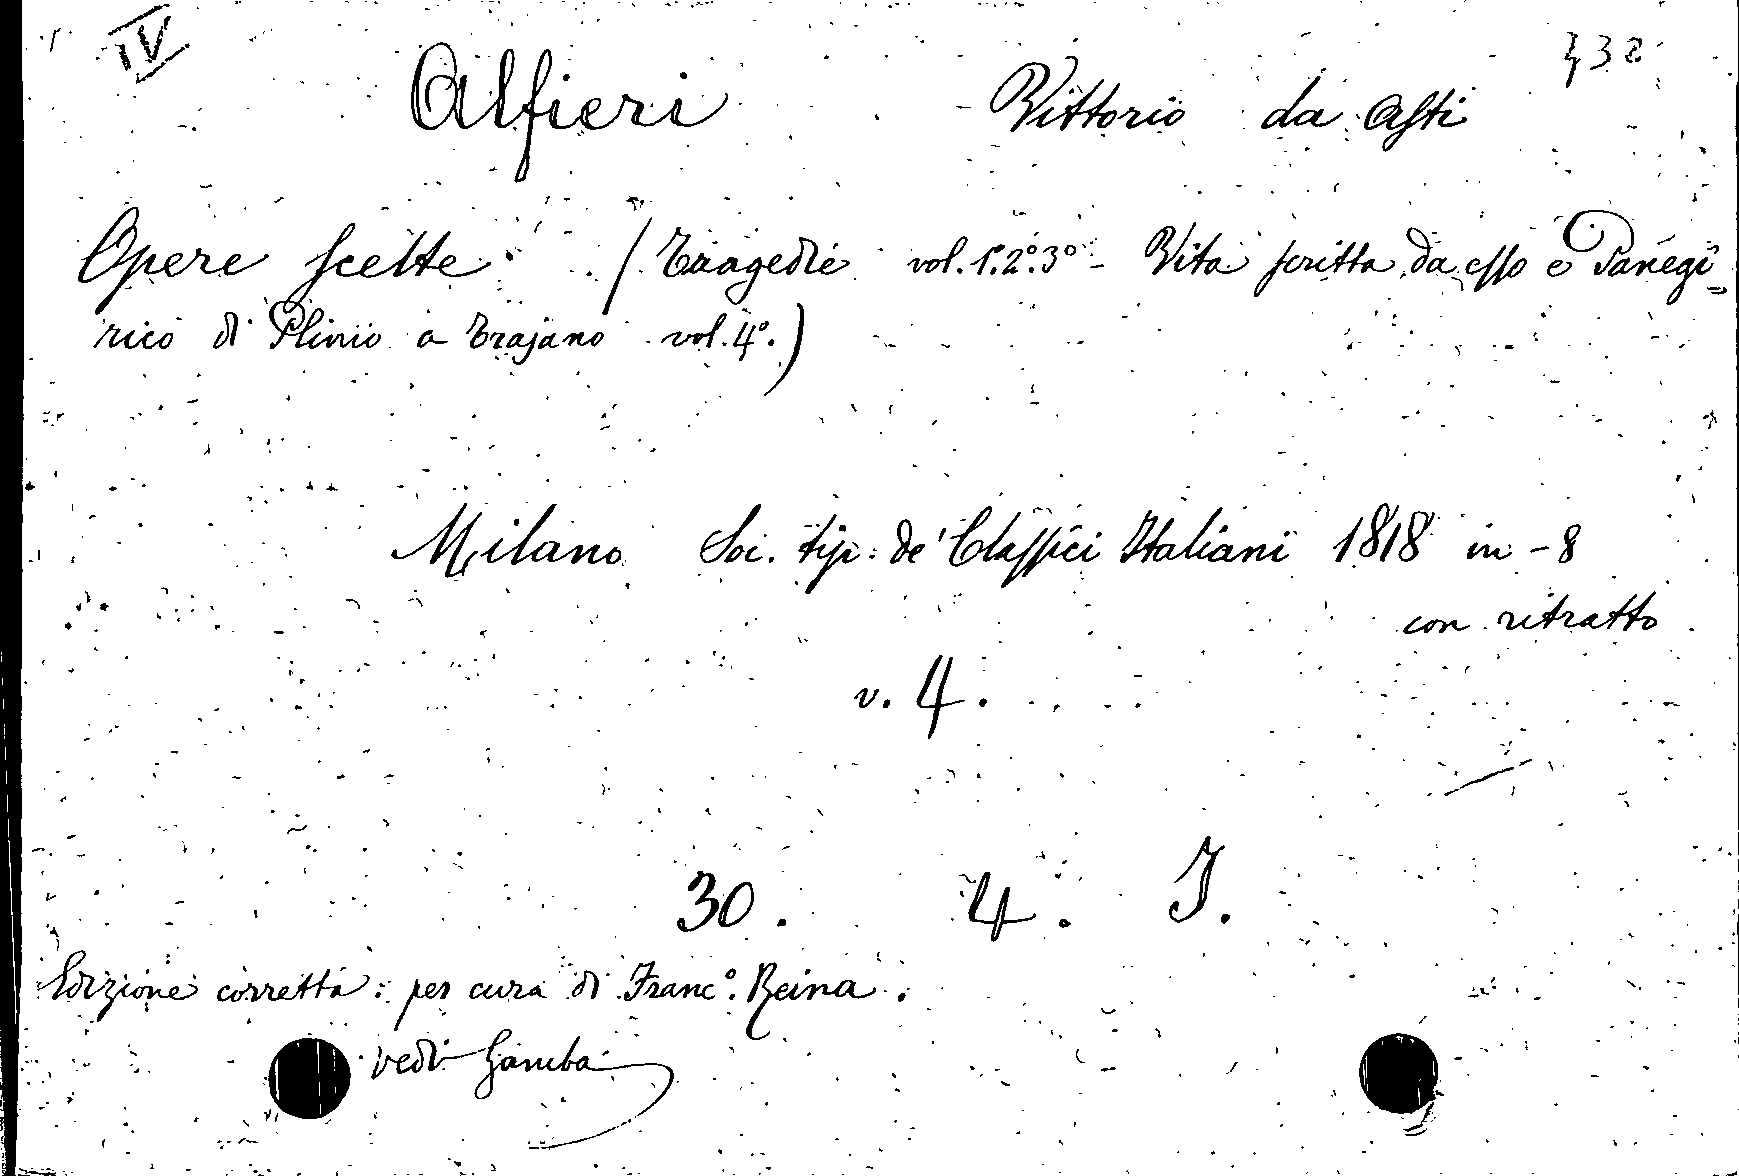 IV
432
Alfieri Vittorio da Asti
Opere scelte (Tragedie vol. 1.º 2.º 3º - Vita scritta da esso e Panegi-
rico di Plinio a Trajano vol. 4º.)
Milano Soc. tip. de' Classici Italiani 1818 in-8
con ritratto
v. 4.
30. 4. I.
Edizione corretta: per cura di Francº. Reina.
vedi Gamba